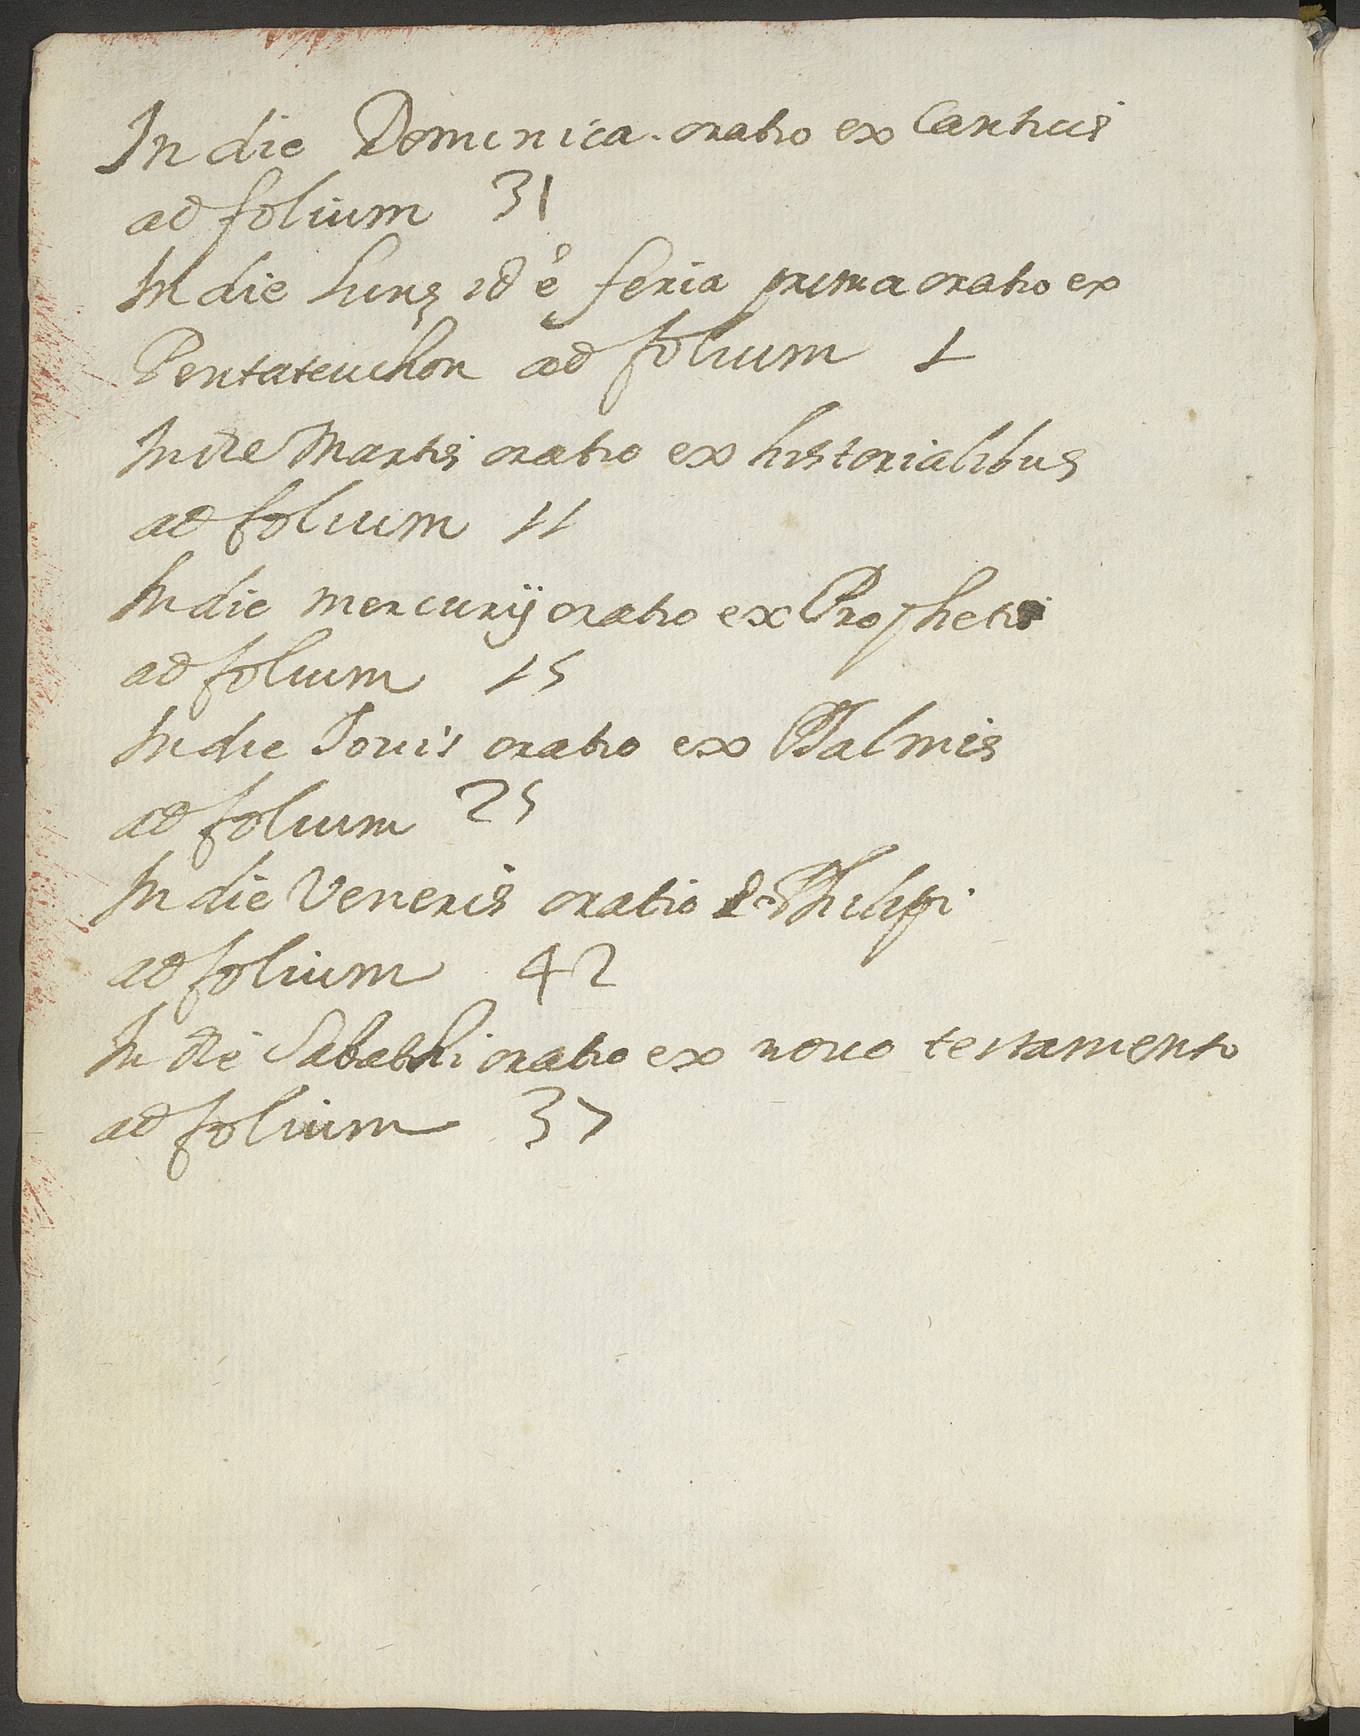 In die Dominica. oratio ex Canticis
ad folium 31
In die Lunę id ē feria prima oratio ex
Pentateuchon ad folium 1
In die Martis oratio ex historialibus
ad folium 11
In die mercurij oratio ex Prophetis
ad folium 15
In die Iouis oratio ex Psalmis
ad folium 25
In die Veneris oratio Philippi
ad folium 42
In die Sabathi oratio ex nouo testamento
ad folium 37